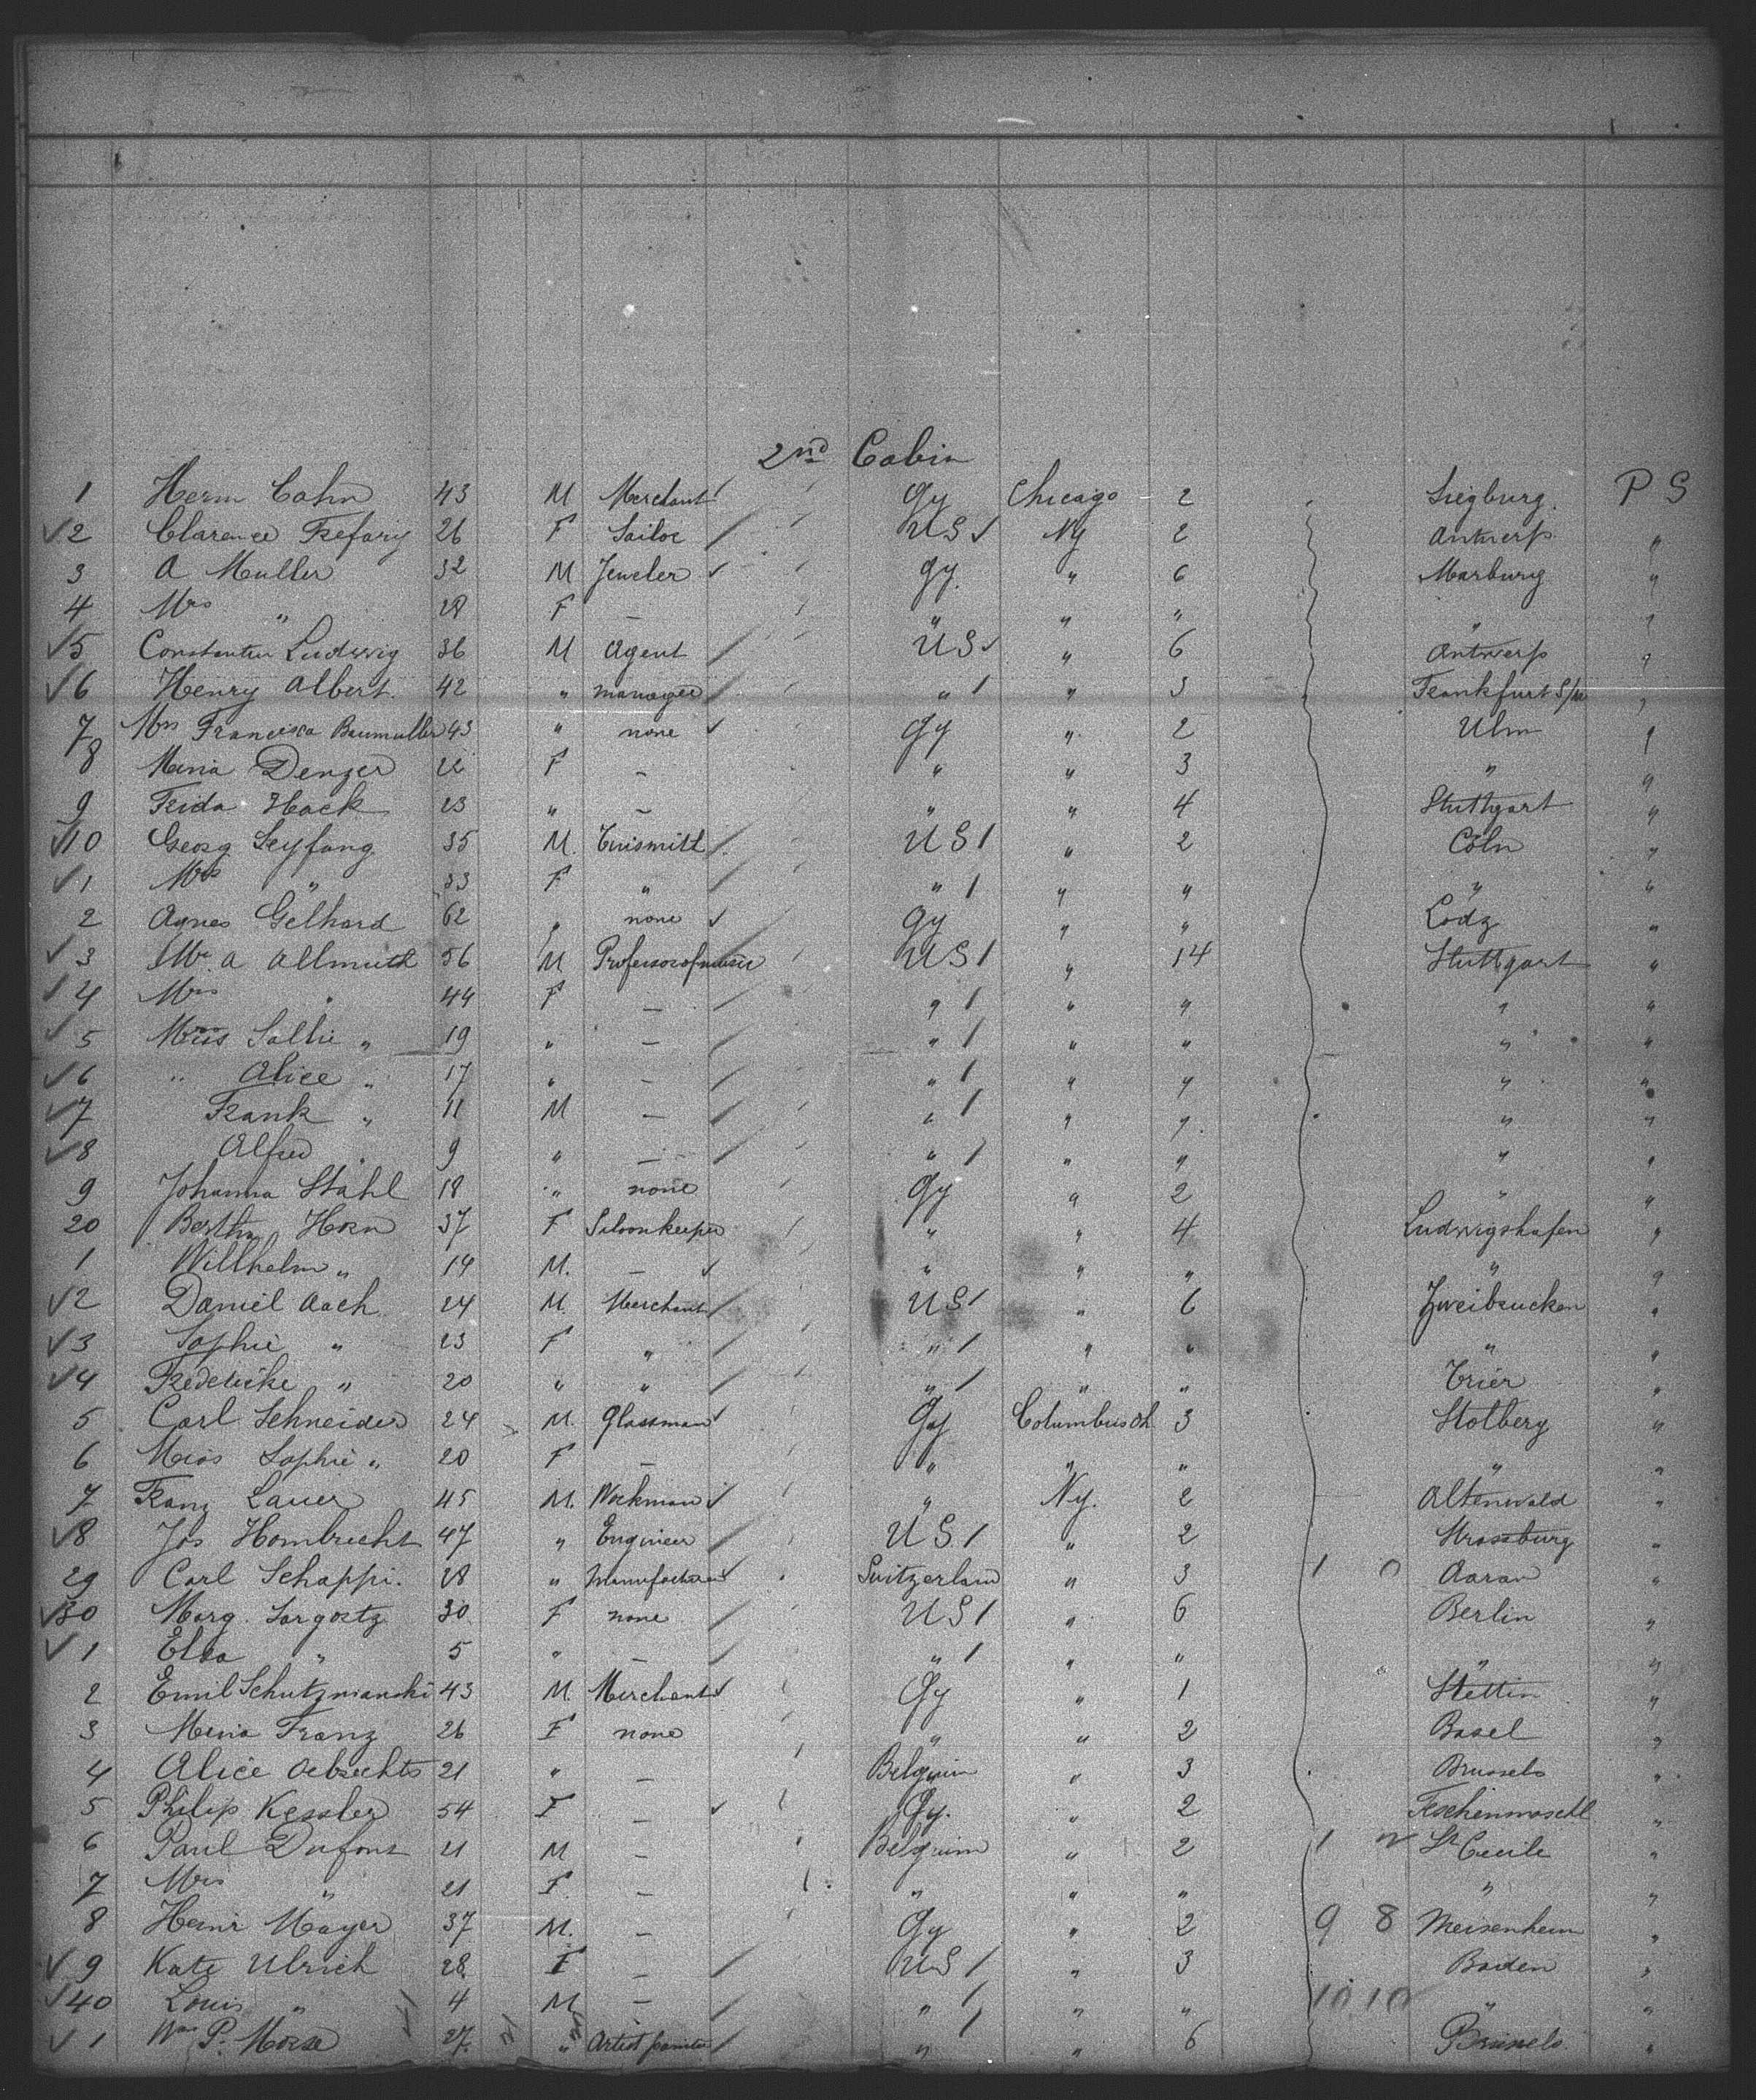 2nd Cabin
1 Herm Cahn 43 M Merchant Gy Chicago 2 Siegburg P S
2 Clarence Trefarig 26 F Sailor US Ny 2 Antwerp "
3 A Muller 32 M Jeweler Gy. " 6 Marburg "
4 Mrs " 28 F — " " " " "
5 Constantin Ludwig 36 M Agent US " 6 Antwerp "
6 Henry Albert. 42 " manager " " 3 Frankfurt "
7 Mrs Francisca Baumuller 43 " none Gy " 2 Ulm "
8 Maria Denzer 22 F — " " 3 " "
9 Frida Hack 23 " — " " 4 Stuttgart "
10 Georg Seyfang 35 M. Tinsmith US " 2 Cöln "
1 Mrs " 33 F " " " " " "
2 Agnes Gelhard 62 " none Gy " " Lodz "
3 Mr. A Allmuth 56 M Professor of music US " 14 Stuttgart "
4 Mrs " 44 F — " " " " "
5 Miss Sallie " 19 " — " " " " "
6 " Alice " 17 " — " " " " "
7 Frank " 11 M — " " " " "
8 Alfred 9 " — " " " " "
9 Johanna Stahl 18 " none Gy " 2 " "
20 Bertha Horn 37 F Saloonkeeper " " 4 Ludwigshafen "
1 Willhelm " 14 M. — " " " " "
2 Daniel Aach 24 M. Merchant US " 6 Zweibrucken "
3 Sophie " 23 F " " " " " "
4 Frederike " 20 " " " " " Trier "
5 Carl Schneider 24 M. Glassman Gy Columbus Oh 3 Stolberg "
6 Miss Sophie " 20 F — " " " " "
7 Franz Lauer 45 M. Workman " Ny. 2 Altenwald "
8 Jos Hombrecht 47 " Engineer US " 2 Strassburg "
29 Carl Schappi. 28 " Manufacturer Switzerland " 3 1 0 Aarau "
30 Marg. Sargostz 30 F none US " 6 Berlin "
1 Elsa " 5 " — " " " " "
2 Emil Schutzmanski 43 M. Merchant Gy " 1 Stettin "
3 Mina Franz 26 F none " " 2 Basel "
4 Alice Aebrechts 21 " — Belgium " 3 Brussels "
5 Philip Kessler 54 F — Gy. " 2 "
6 Paul Dufont 21 M — Belgium " 2 1 St Cecile "
7 Mrs " 21 F. — " " " " "
8 Heinr Mayer 37 M. — Gy " 2 9 8 Meisenheim "
9 Kate Ulrich 28 F — US " 3 Baden "
40 Louis " 4 M — " " " 10 10 " "
1 Wm P. Morse 27. " Artist painter " " 6 Brussels "